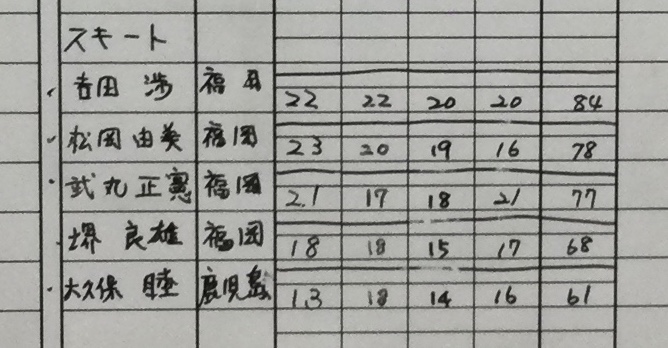 スキート
吉田 渉 福岡 22 22 20 20 84
松岡 由美 福岡 23 20 19 16 78
武丸 正憲 福岡 21 17 18 21 77
堺 良雄 福岡 18 18 15 17 68
大久保 睦 鹿児島 13 18 14 16 61